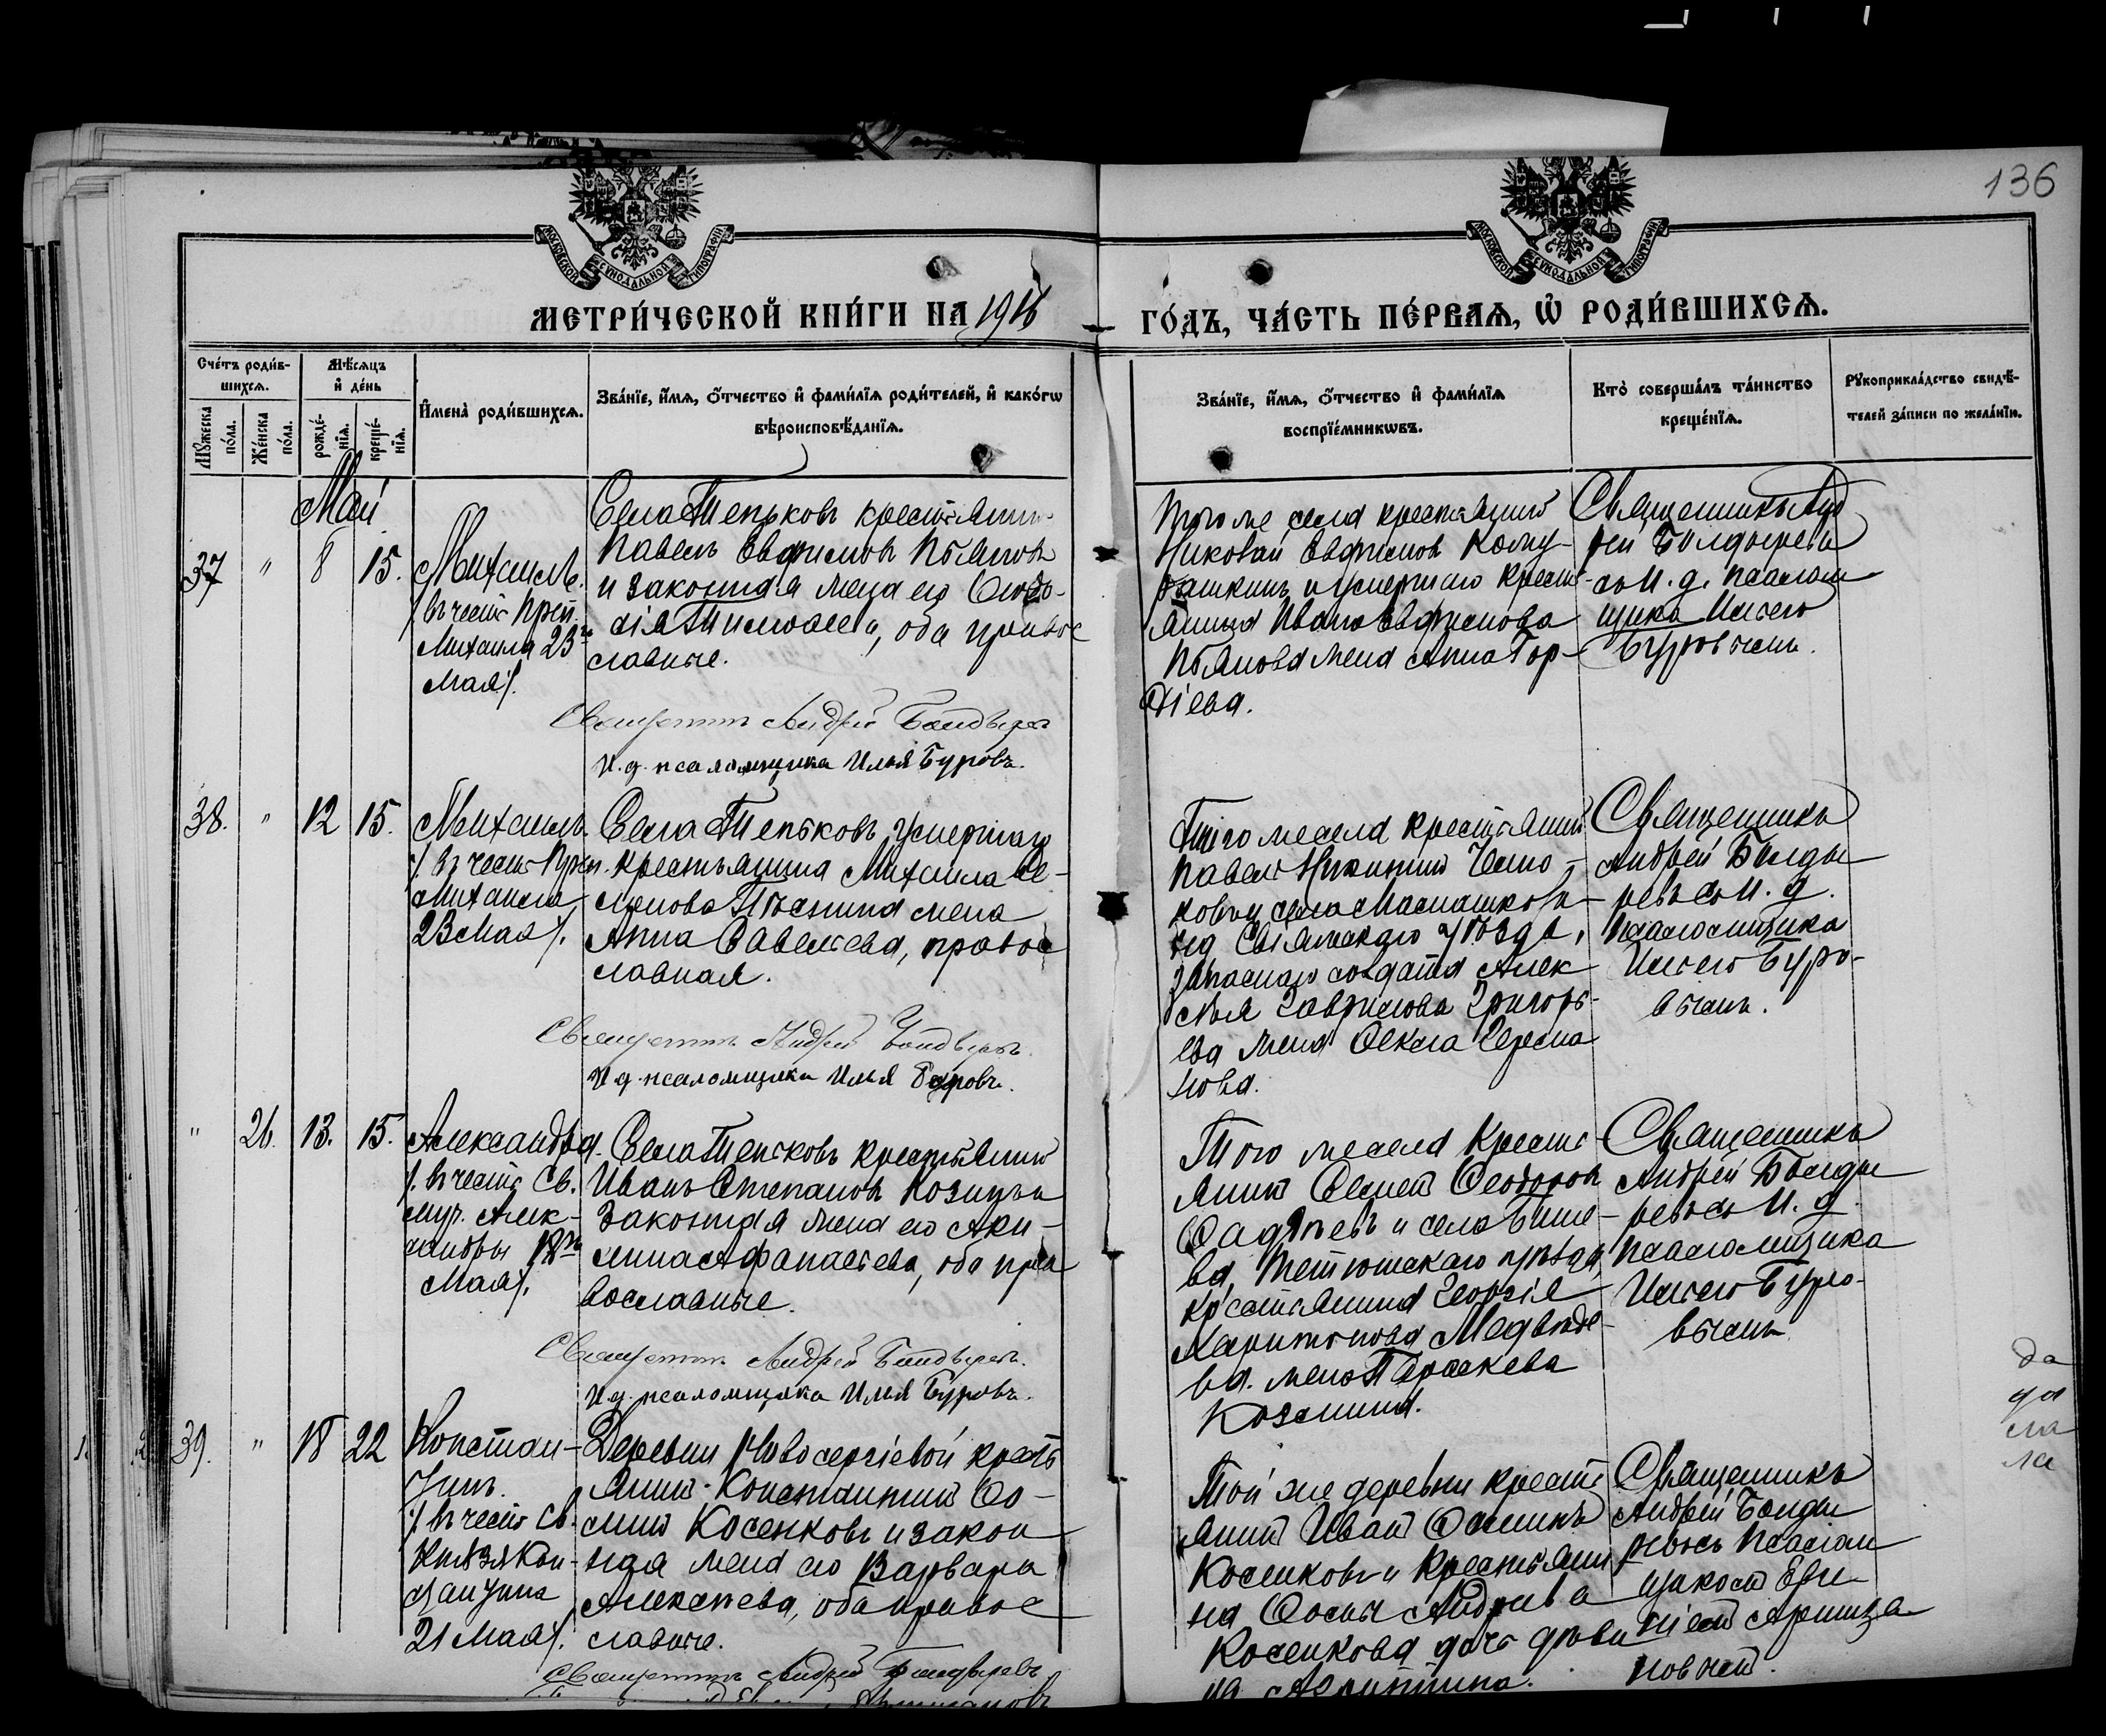 136
МОСКОВСКОЙ СѴНОДАЛЬНОЙ ТИПОГРАФІИ
МОСКОВСКОЙ СѴНОДАЛЬНОЙ ТИПОГРАФІИ
МЕТРИ́ЧЕСКОЙ КНИ́ГИ НА 1916
ГО́ДЪ, ЧА́СТЬ ПЕ́РВАѦ, Ѡ҆ РОДИ́ВШИХСѦ.
Сче́тъ роди́в-
шихсѧ.
Мѣ́сѧцъ
и҆ де́нь
Мꙋ́жеска
по́ла.
Же́нска
по́ла.
рожде́-
нїѧ.
креще́-
нїѧ.
И҆мена̀ роди́вшихсѧ.
Зва́нїе, и҆́мѧ, ѻ҆́тчество и҆ фами́лїѧ роди́телей, и҆ како́гѡ
вѣроисповѣ́данїѧ.
Зва́нїе, и҆́мѧ, ѻ҆́тчество и҆ фами́лїѧ
воспрїе́мникѡвъ.
Кто̀ соверша́лъ та́инство
креще́нїѧ.
Рꙋкоприкла́дство свидѣ́-
телей за́писи по жела́нїю.
Май
37 " 8 15.
Михаилъ.
/въ честь Преп.
Михаила 23го
Мая/.
Села Теньковъ крестьянинъ
Павелъ Евфимовъ Пьяновъ
и законная жена его Ѳеодо-
сія, оба правос
славные.
Священникъ Андрей Болдыревъ
И. д. псаломщика Илья Буровъ.
Того же села крестьянинъ
Николай Евфимовъ
и умершаго кресть-
янина Ивана Евфимова
Пьянова жена Анна Гор-
діева.
Священникъ Анд
рей Болдыревъ
съ И. д. псалом
щика Ильею
Буровымъ.
38. " 12 15.
Михаилъ.
/въ честь Преп.
Михаила
23 Мая/.
Села Теньковъ умершаго
крестьянина Михаила Се-
менова жена
Анна Савельева, правос
лавная.
Священникъ Андрей Болдыревъ.
И. д. псаломщика Илья Буровъ.
Того же села крестьянинъ
Павелъ Никитинъ
ковъ и села
Свіяжскаго уѣзда,
запаснаго солдата Алек
сѣя Гаврилова Григорь-
ева жена Ѳекла
нова.
Священникъ
Андрей Болды
ревъ съ И. д.
Псаломщика
Ильею Буро-
вымъ.
" 26. 13. 15.
Александра.
/въ честь Св.
муч. Алек-
сандры 18го
Мая/.
Села Теньковъ крестьянинъ
Иванъ Степановъ и
законная жена его Аки-
лина Афанасьева, оба пра
вославные.
Священникъ Андрей Болдыревъ.
И. д. псаломщика Илья Буровъ.
Того же села кресть-
янинъ Ѳеодоровъ
и села
ва, Тетюшскаго уѣзда,
крестьянина Георгія
Харитонова Медвѣде-
ва жена Параскева
Козьмина.
Священникъ
Андрей Болды
ревъ съ И. д.
Псаломщика
Ильею Буро-
вымъ
39. " 18 22
Констан-
тинъ.
/въ честь Св.
Князя Кон-
стантина
21 Мая/.
Деревни Новосергіевой кресть
янинъ Константинъ Ѳо-
минъ Косенковъ и закон
ная жена его Варвара
Алексѣева, оба правос
лавные.
Священникъ Андрей Болдыревъ
Той же деревни кресть
янинъ Иванъ Ѳоминъ
Косенковъ и крестьяни
на Ѳомы Андреева
Косенкова дочь дѣви
ца
Священникъ
Андрей Болды
ревъ съ Псалом
щикомъ Евге-
ніемъ
новымъ.
да